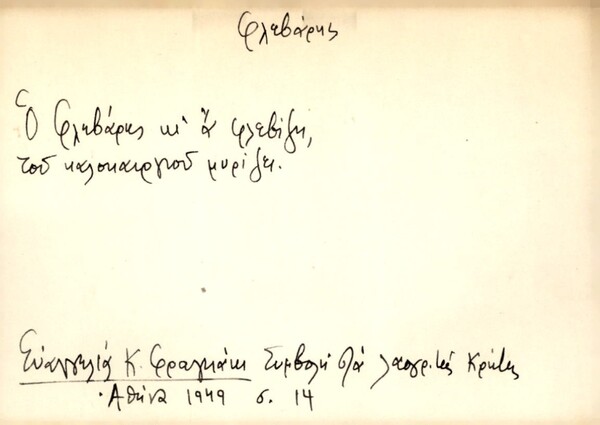 Φλεβάρης
Ὁ Φλεβάρης κι' ἂ φλεβίζῃ,
τοῦ καλοκαιριοῦ μυρίζει.
Εὐαγγελία Κ. Φραγκάκι Συμβολή στὰ λαογρ. τῆς Κρήτης
Ἀθήνα 1949 σ. 14